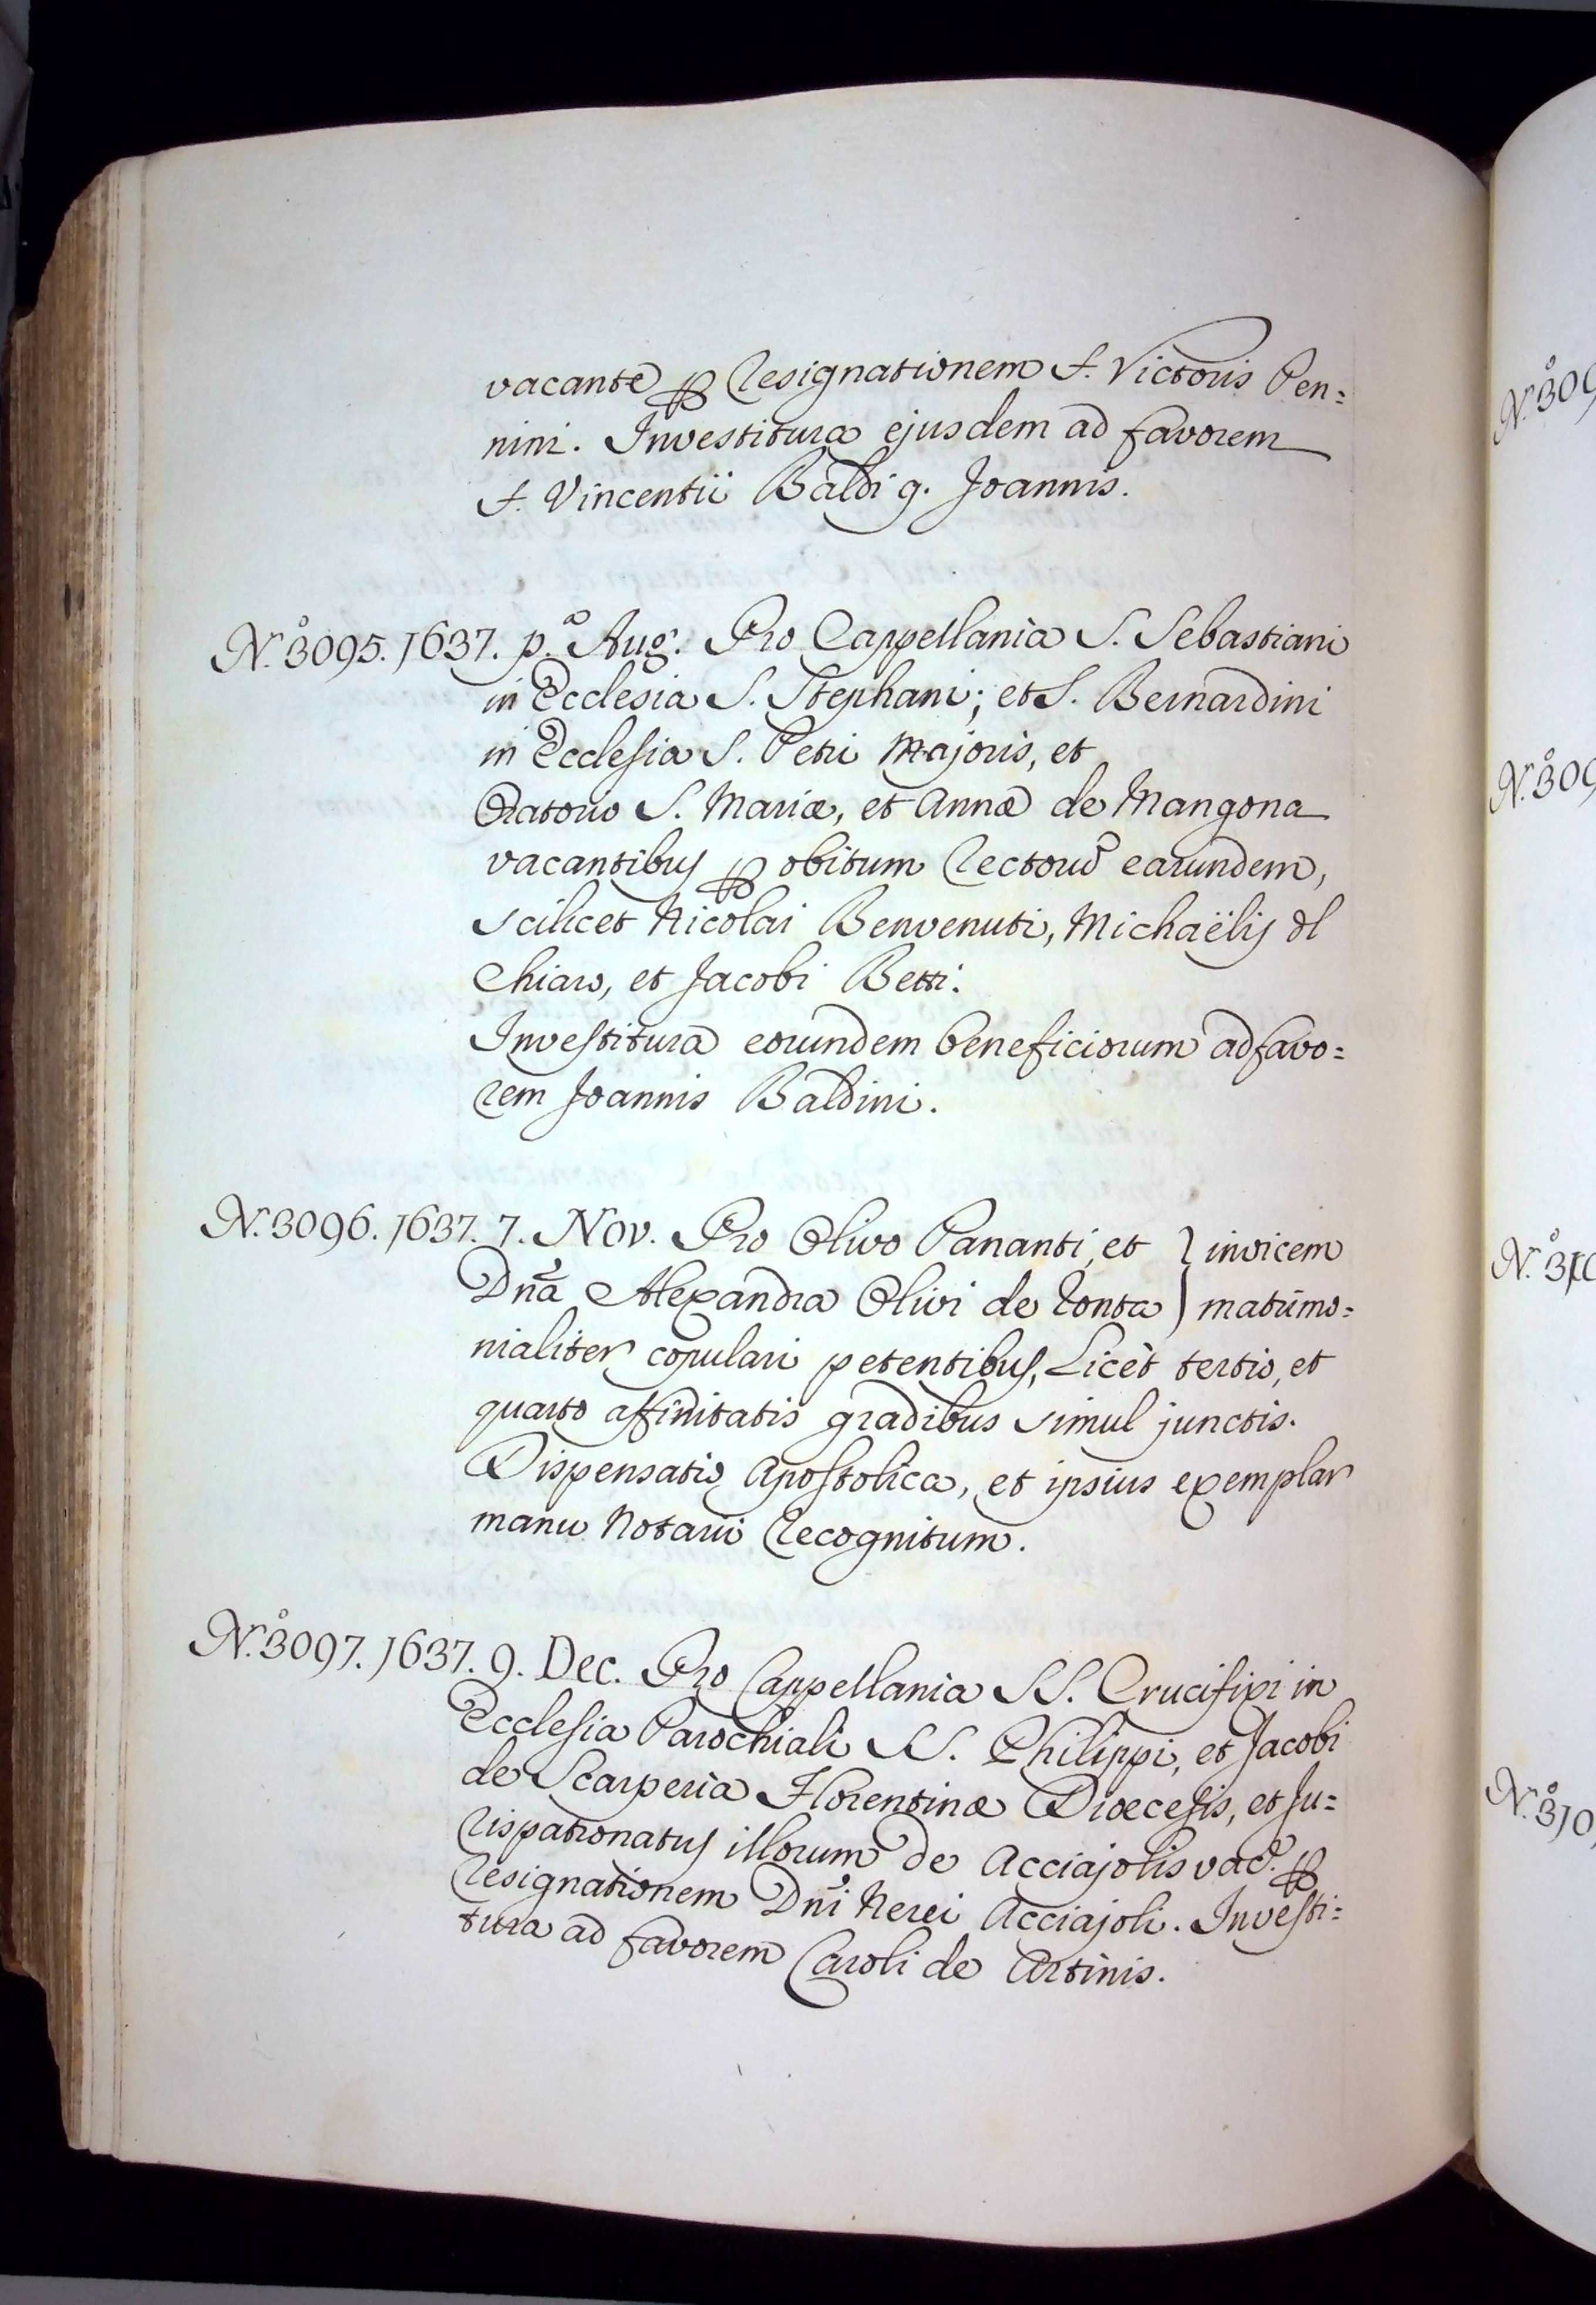 vacante ꝑ Resignationem F. Victoris Pen=
nini. Investitura ejusdem ad favorem
F. Vincentii Baldi q. Joannis.
N.º 3095. 1637. p.º Aug. Pro Cappellania S. Sebastiani
in Ecclesia S. Stephani; et S. Bernardini
in Ecclesia S. Petri Majoris, et
Oratorio S. Mariæ, et Annæ de Mangona
vacantibus ꝑ obitum Rectorū earundem,
scilicet Nicolai Benvenuti, Michaëlis dl
Chiaro, et Jacobi Betti.
Investitura eorundem beneficiorum ad favo=
rem Joannis Baldini.
N. 3096. 1637. 7. Nov. Pro Olivo Pananti, et } invicem
Dn̄a Alexandra Olivi de Ronta } matrimo=
nialiter copulari petentibus, Licèt tertio, et
quarto affinitatis gradibus simul junctis.
Dispensatio Apostolica, et ipsius exemplar
manu Notarii Recognitum.
N.º 3097. 1637. 9. Dec. Pro Cappellania SS. Crucifixi in
Ecclesia Parochiali SS. Philippi, et Jacobi
de Scarperia Florentinæ Dioecesis, et Ju=
rispatronatus illorum de Acciajolis vac. ꝑ
Resignationem Dn̄i Nerei Acciajoli. Investi=
tura ad favorem Caroli de Artinis.
N.º 309
N.º 309
N.º 310
N.º 310